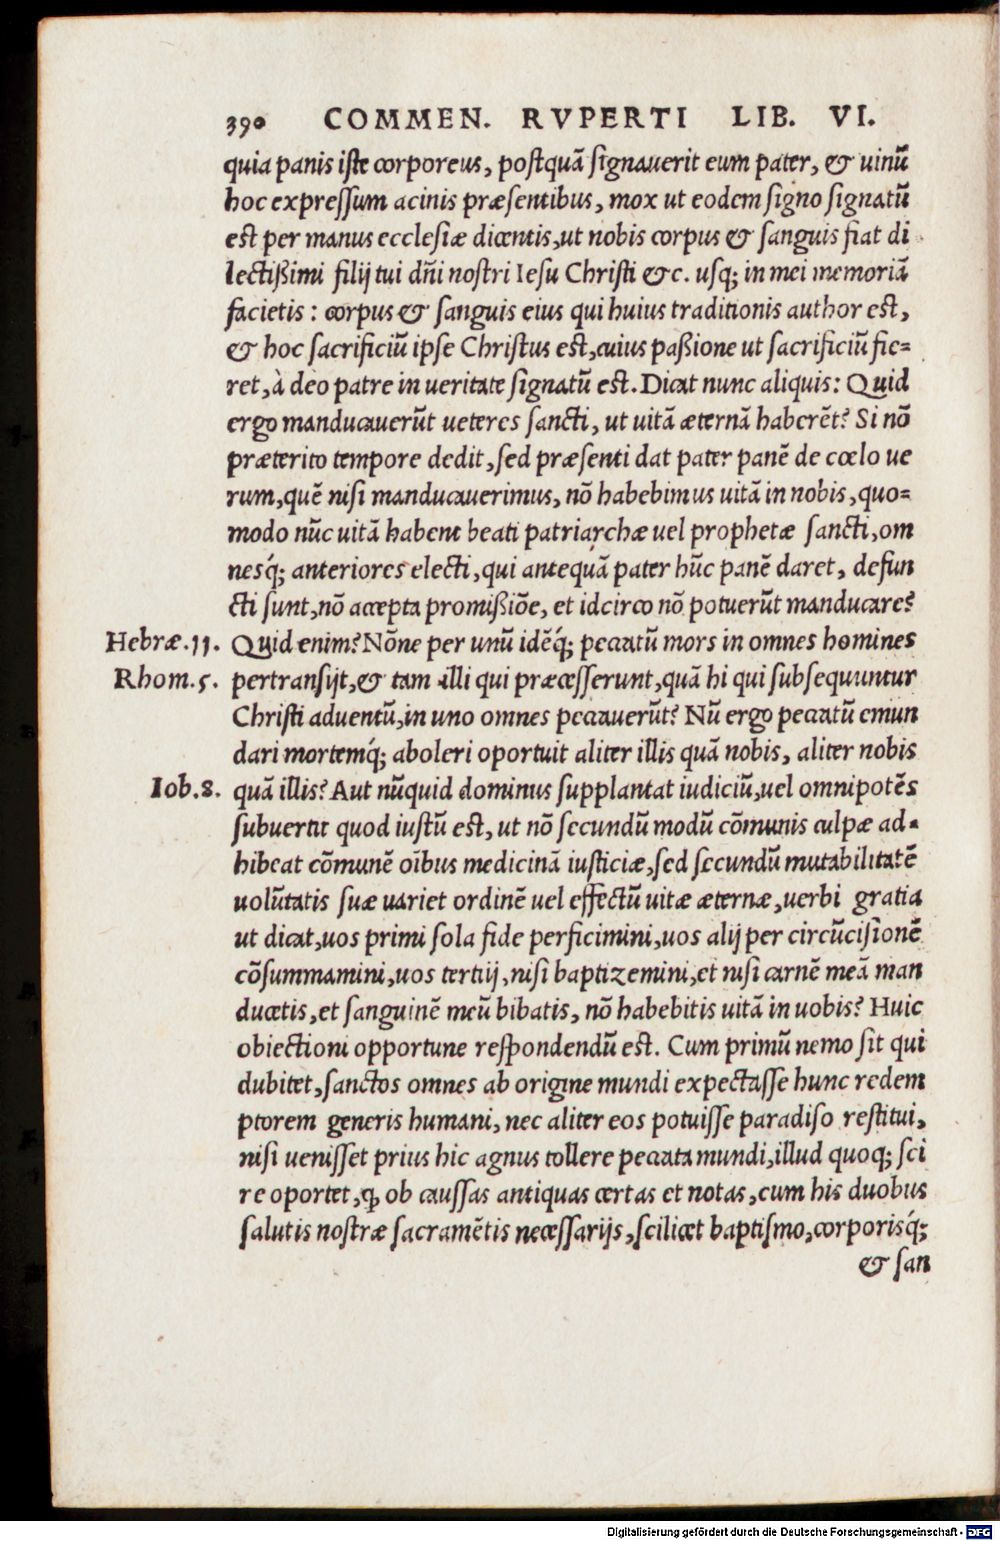 390 COMMEN. RVPERTI LIB. VI.
quia panis iste corporeus, postquā signauerit eum pater, & uinū
hoc expressum acinis præsentibus, mox ut eodem signo signatū
est per manus ecclesiæ dicentis, ut nobis corpus & sanguis fiat di
lectißimi filij tui dñi nostri Iesu Christi &c. usq; in mei memoriā
facietis: corpus & sanguis eius qui huius traditionis author est,
& hoc sacrificiū ipse Christus est, cuius paßione ut sacrificiū fie=
ret, à deo patre in ueritate signatū est. Dicat nunc aliquis: Quid
ergo manducauerūt ueteres sancti, ut uitā æternā haberēt? Si nō
præterito tempore dedit, sed præsenti dat pater panē de cœlo ue
rum, quē nisi manducauerimus, nō habebimus uitā in nobis, quo=
modo nūc uitā habent beati patriarchæ uel prophetæ sancti, om
nesq́; anteriores electi, qui antequā pater hūc panē daret, defun
cti sunt, nō accepta promißiōe, et idcirco nō potuerūt manducare?
Hebræ. 11. Quid enim? Nōne per unū idēq́; peccatū mors in omnes homines
Rhom. 5. pertransijt, & tam illi qui præcesserunt, quā hi qui subsequuntur
Christi aduentū, in uno omnes peccauerūt? Nū ergo peccatū emun
dari mortemq́; aboleri oportuit aliter illis quā nobis, aliter nobis
Iob. 8. quā illis? Aut nūquid dominus supplantat iudiciū, uel omnipotēs
subuertit quod iustū est, ut nō secundū modū cōmunis culpæ ad=
hibeat cōmunē oībus medicinā iusticiæ, sed secundū mutabilitatē
uolūtatis suæ uariet ordinē uel effectū uitæ æternæ, uerbi gratia
ut dicat, uos primi sola fide perficimini, uos alij per circūcisionē
cōsummamini, uos tertij, nisi baptizemini, et nisi carnē meā man
ducetis, et sanguinē meū bibatis, nō habebitis uitā in uobis? Huic
obiectioni opportune respondendū est. Cum primū nemo sit qui
dubitet, sanctos omnes ab origine mundi expectasse hunc redem
ptorem generis humani, nec aliter eos potuisse paradiso restitui,
nisi uenisset prius hic agnus tollere peccata mundi, illud quoq; sci
re oportet, ꝙ ob caussas antiquas certas et notas, cum his duobus
salutis nostræ sacramētis necessarijs, scilicet baptismo, corporisq́;
& san
Digitalisierung gefördert durch die Deutsche Forschungsgemeinschaft - DFG